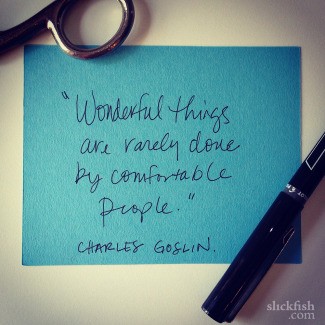 "Wonderful things
are rarely done
by comfortable
people."
CHARLES GOSLIN.
slickfish
.com